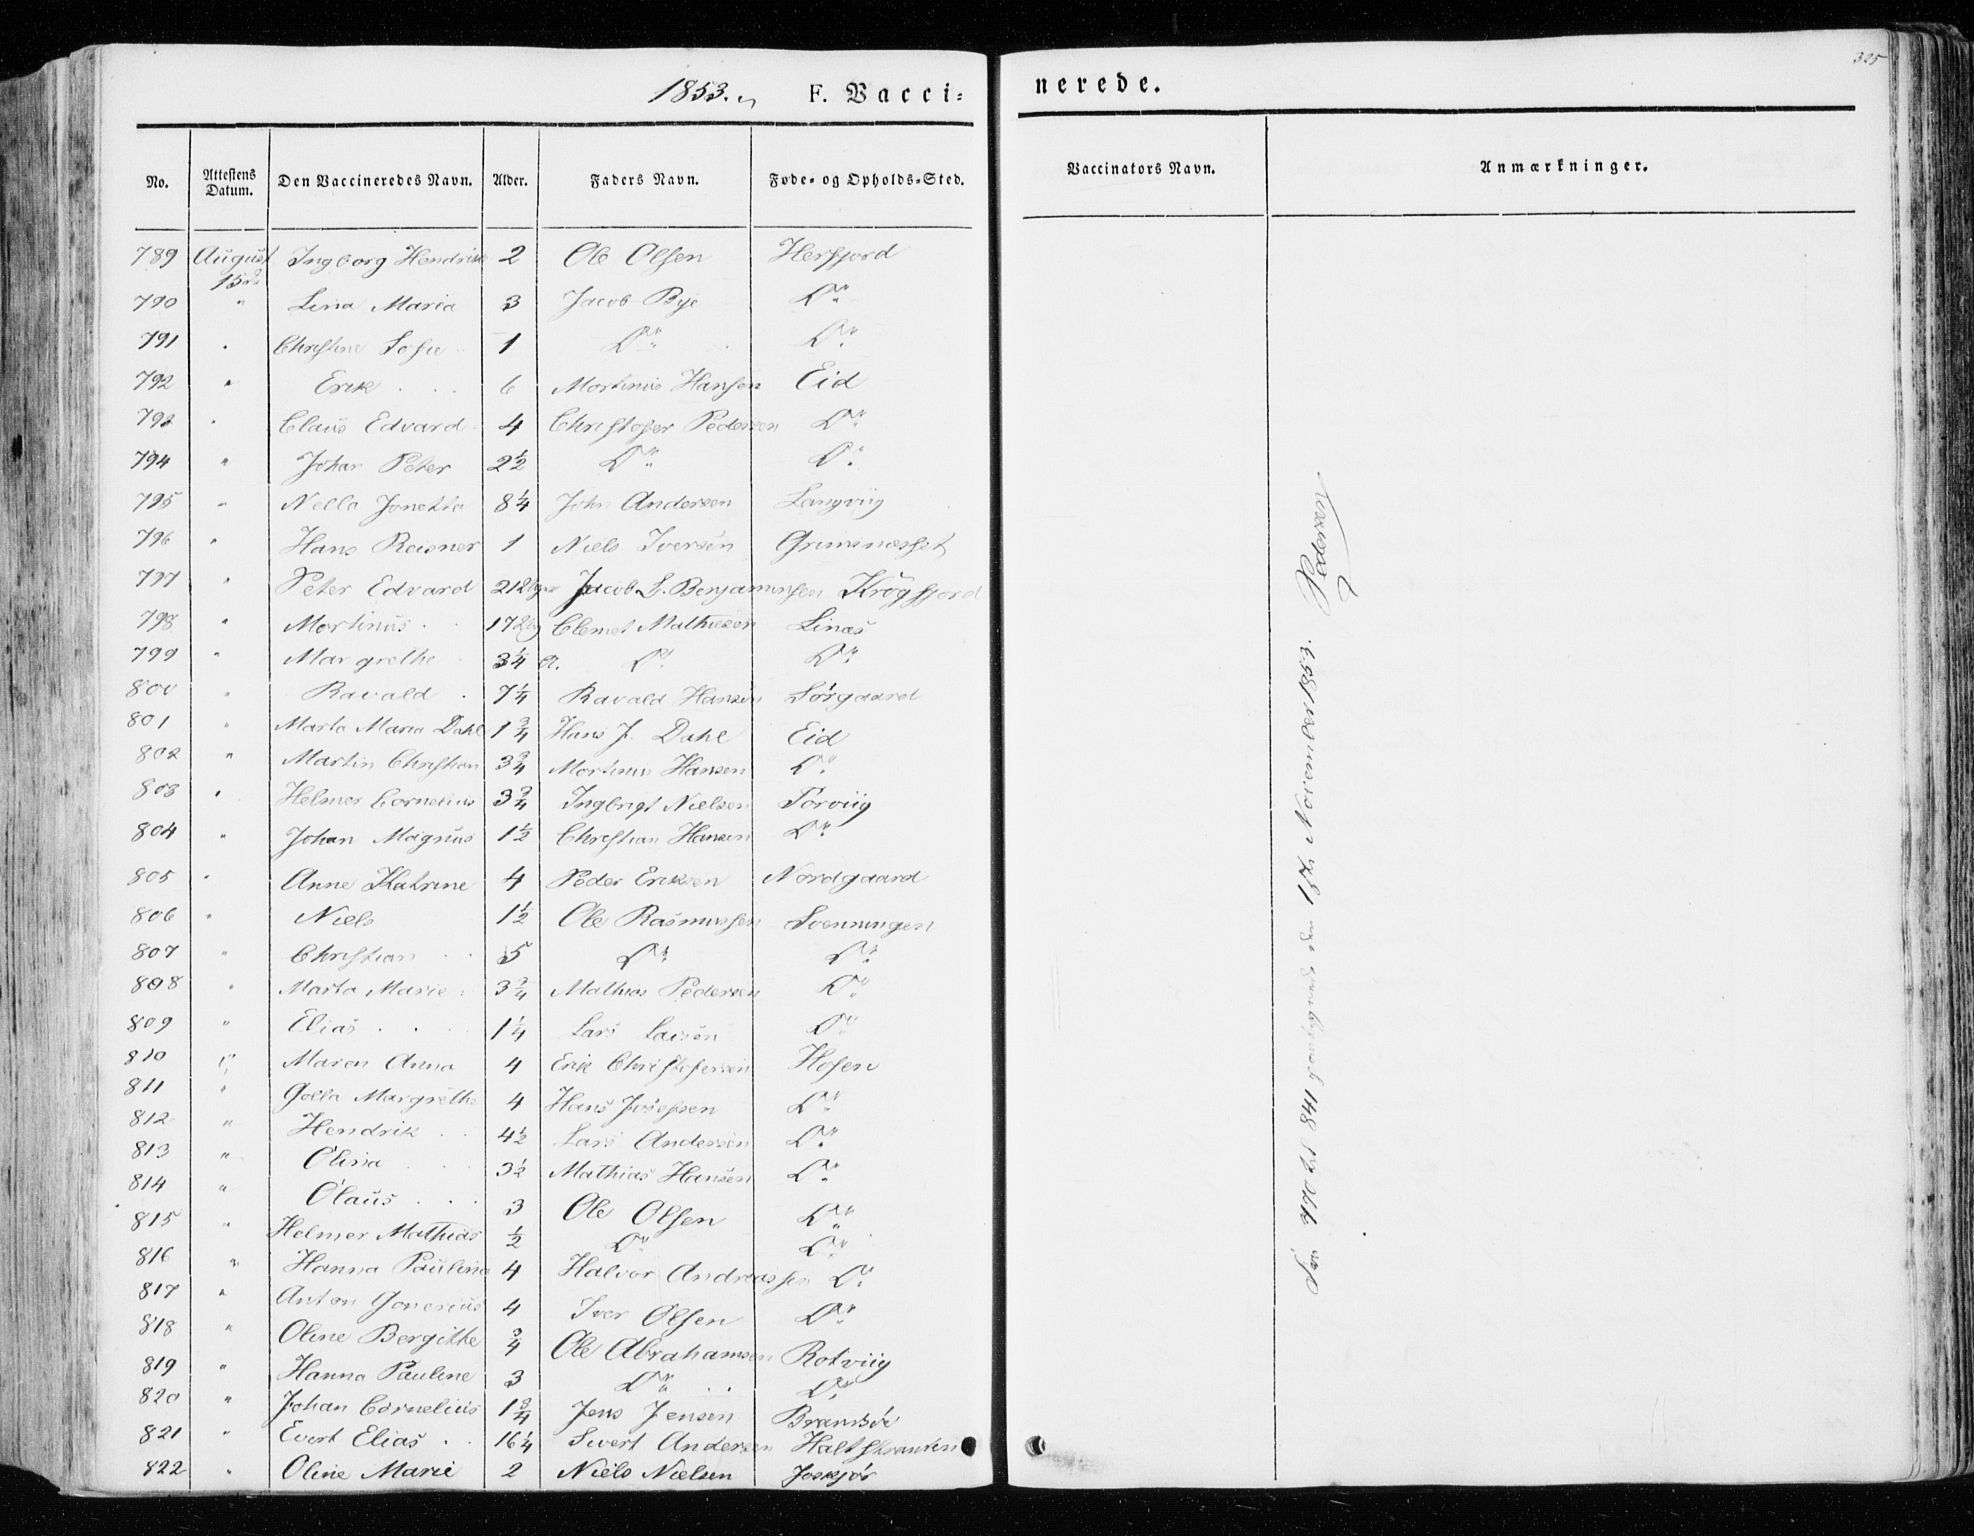 1853. F. Vacci=
nerede.
325
No. Attestens Datum. Den Vaccineredes Navn. Alder. Faders Navn. Føde- og Opholds-Sted.
Vaccinators Navn. Anmærkninger.
789 August 15de Ingborg Hendrik 2 Ole Olsen Herfjord
790 " Lina Maria 3 Jacob Bye Do
791 " Christine Sofie 1 Do Do
792 " Erik 6 Mortinus Hansen Eid
793 " Claus Edvard 4 Christofer Pedersen Do
794 " Johan Peter 2½ Do Do
795 " Nella Jonetta 8¼ John Andersen Langviig
796 " Hans Reisner 1 Niels Iversen Grunnæsset
797 " Peter Edvard 212 Jacob L. Benjaminsen Krogfjord
798 " Mortinus 172 Clemet Mathiesen Linæs
799 " Margrethe 3¼ a. Do Do
800 " Ravald 7¼ Ravald Hansen Sørgaard
801 " Marta Maria Dahl 1¾ Hans J. Dahl Eid
802 " Martin Christian 3¾ Mortinus Hansen Do
803 " Helmer Cornelius 3¾ Ingbrigt Nielsen Torviig
804 " Johan Magnus 1½ Christian Hansen Do
805 " Anne Katrine 4 Peder Eriksen Nordgaard
806 " Niels 1½ Ole Rasmussen Svenningen
807 " Christian 5 Do Do
808 " Marta Marie 3¾ Mathias Pedersen Do
809 " Elias 1¼ Lars Larsen Do
810 " Maren Anna 4 Erik Christofersen Hofen
811 " Golla Margrethe 4 Hans Josefsen Do
812 " Hendrik 4½ Lars Andersen Do
813 " Olina 3½ Mathias Hansen Do
814 " Olaus 3 Ole Olsen Do
815 " Helmer Mathias ½ Do Do
816 " Hanna Paulina 4 Halvor Andreassen Do
817 " Anton Gonerius 4 Iver Olsen Do
818 " Oline Bergitte ¾ Ole Abrahamsen Rotviig
819 " Hanna Pauline 3 Do Do
820 " Johan Cornelius 1¾ Jens Jensen Bramsøe
821 " Evert Elias 16¼ Sivert Andersen
822 " Oline Marie 2 Niels Nielsen
770 til 841 den 17de November 1853. Pedersen